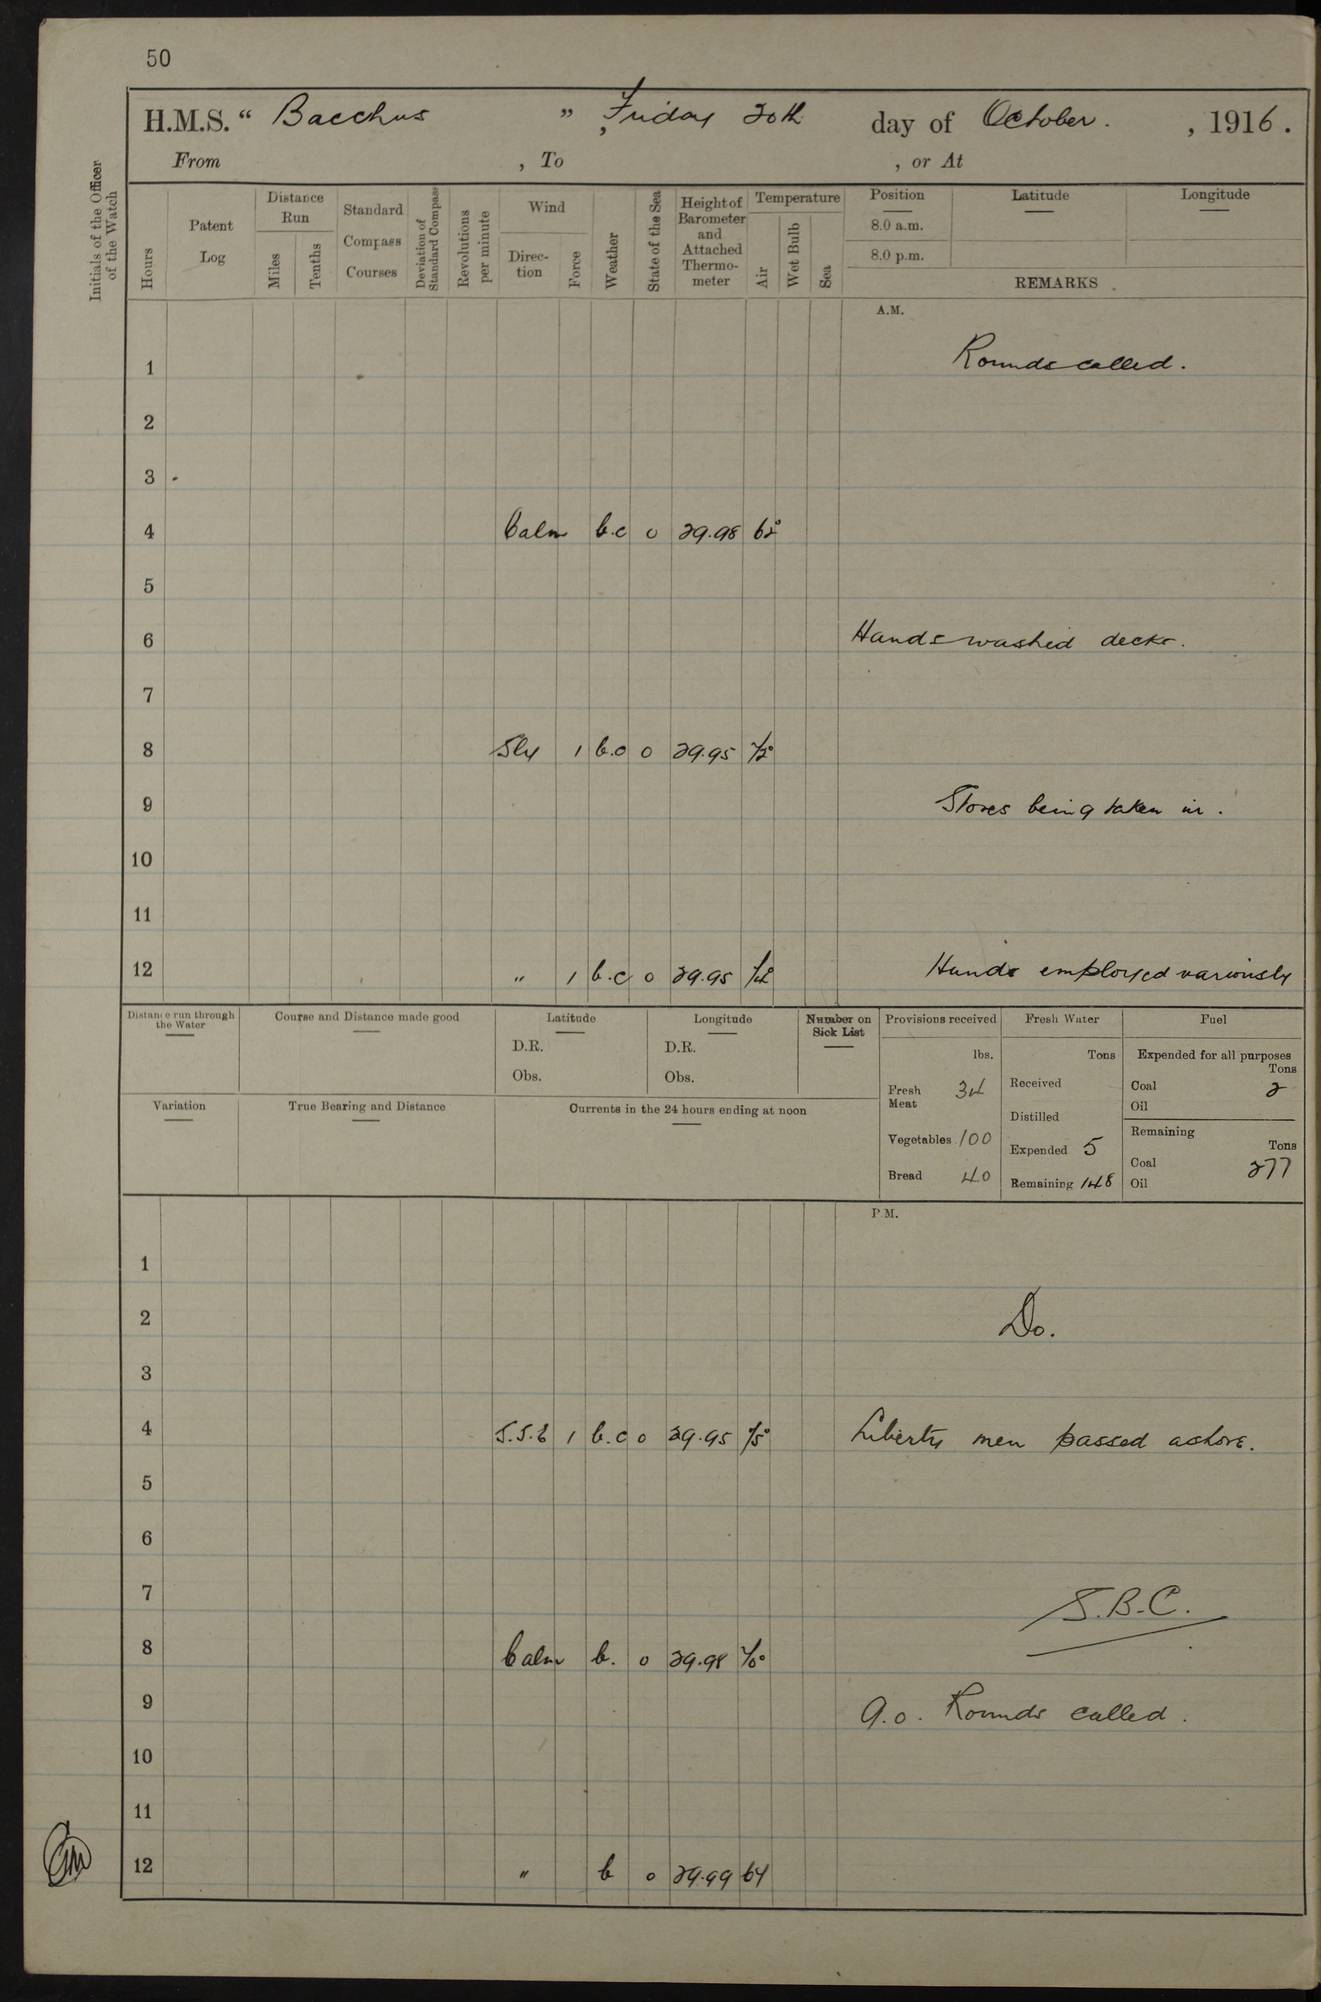 50
H.M.S. “ Bacchus ” , Friday 20th day of October. , 1916.
From , To , or At
Initials of the Officer of the Watch
Hours
Patent Log
Distance Run
Miles
Tenths
Standard Compass Courses
Deviation of Standard Compass
Revolutions per minute
Wind
Direction
Force
Weather
State of the Sea
Height of Barometer and Attached Thermometer
Temperature
Air
Wet Bulb
Sea
Position Latitude Longitude
8.0 a.m.
8.0 p.m.
REMARKS
A.M.
1 Rounds called.
2
3
4 Calm b.c 0 29.98 62°
5
6 Hands washed decks.
7
8 Sly 1 b.c 0 29.95 72°
9 Stores being taken in.
10
11
12 " 1 b.c 0 29.95 Hands employed variously
Distance run through the Water
Course and Distance made good
Latitude
D.R.
Obs.
Longitude
D.R.
Obs.
Number on Sick List
Variation
True Bearing and Distance
Currents in the 24 hours ending at noon
Provisions received
lbs.
Fresh Meat 34
Vegetables 100
Bread 40
Fresh Water
Tons
Received
Distilled
Expended 5
Remaining 148
Fuel
Expended for all purposes
Tons
Coal 2
Oil
Remaining
Tons
Coal 277
Oil
P.M.
1
2 Do.
3
4 S.S.E 1 b.c 0 29.95 75° Liberty men passed ashore.
5
6
7 S.B.C.
8 Calm b. 0 29.98 70°
9 9.0. Rounds called.
10
11
12 " b 0 29.99 64